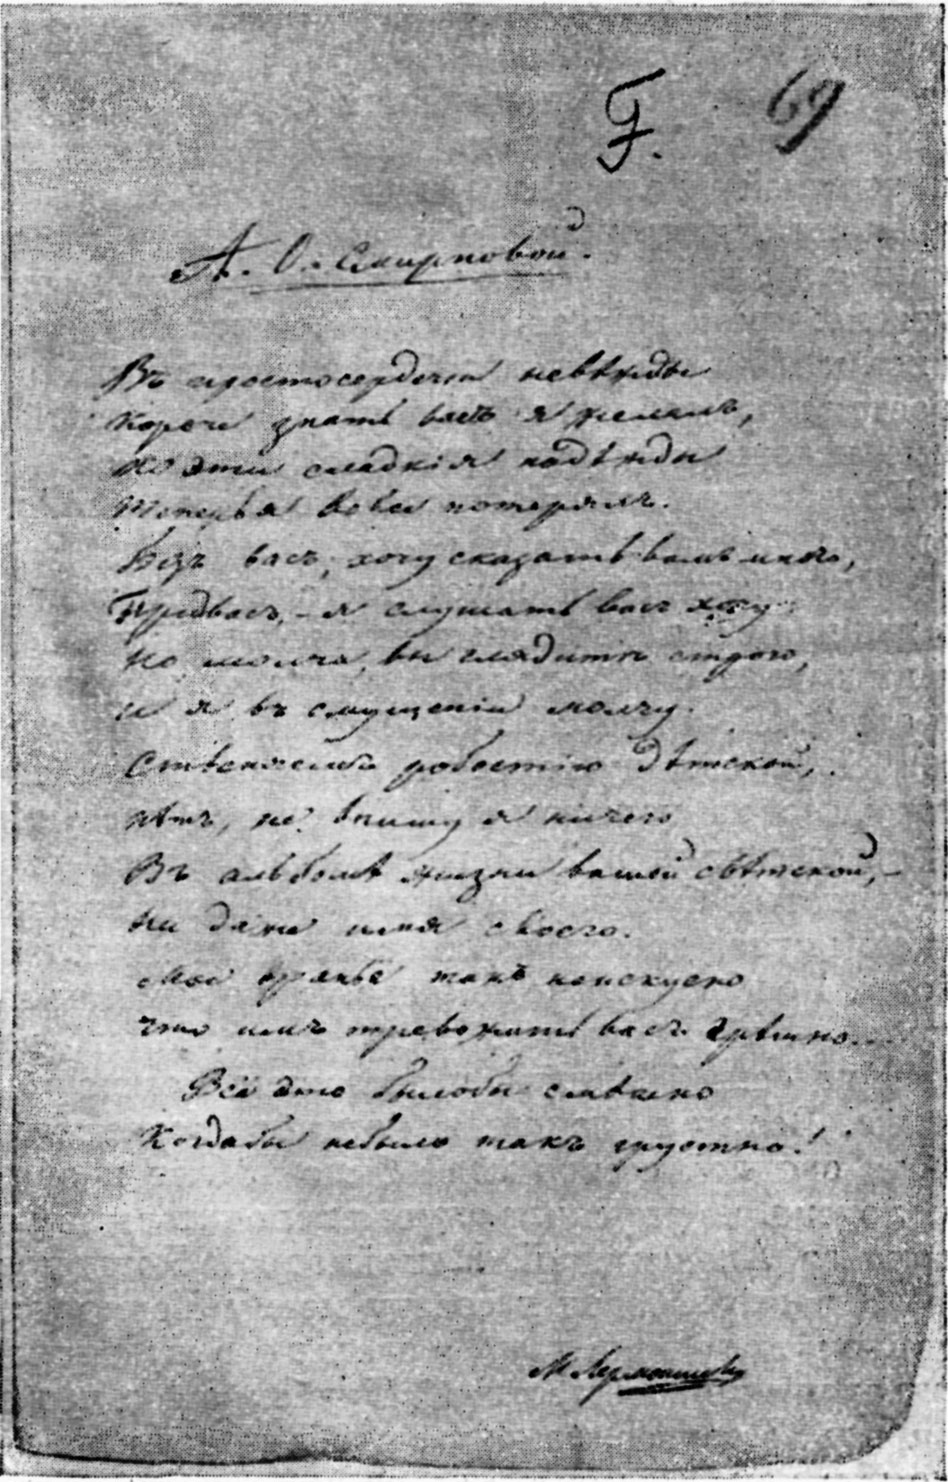 F.
69
А. О. Смирновой.
Въ простосердечіи невѣжды
Короче знать васъ я желалъ,
Но эти сладкія надѣжды
Теперь я вовсе потерялъ.
Безъ васъ, хочу сказать вамъ много,
При васъ, – я слушать васъ хочу
Но молча вы глядите строго,
и я въ смущеніи молчу.
Стѣсняемый робостію дѣтской,
нѣтъ, не впишу я ничего
Въ альбомѣ жизни вашей свѣтской, –
Ни даже имя своего.
Мое вранье такъ неискусно
что имъ тревожить васъ грѣшно...
Всё это было бы смѣшно
Когда бы не было такъ грустно!
М Лермонтовъ